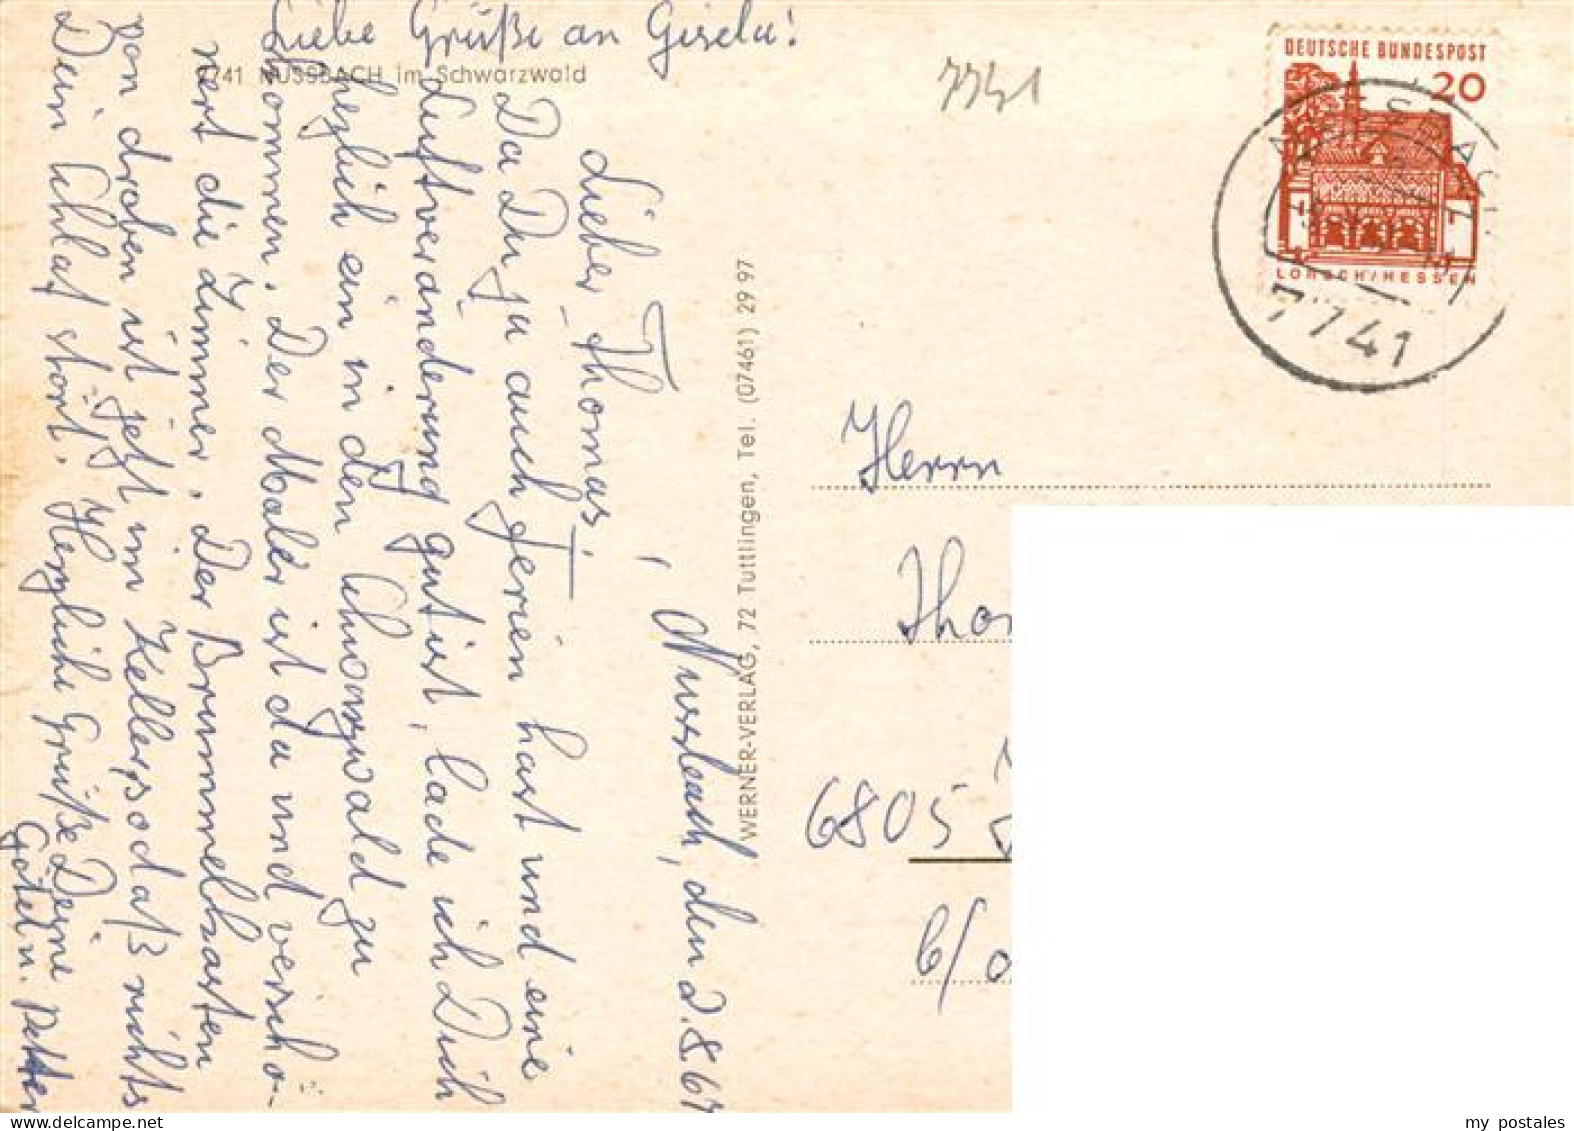 Liebe Grüße an Gisela!
7741 NUSSBACH im Schwarzwald
7741
DEUTSCHE BUNDESPOST
20
LORSCH/HESSEN
7741
Nussbach, den 2.8.67
Lieber Thomas,
Da Du ja auch Ferien hast und eine
Luftveränderung gut ist, lade ich Dich
herzlich ein in den Schwarzwald zu
kommen. Der Maler ist da und verschö-
nert die Zimmer. Der Brummelkasten
von droben ist jetzt im Keller, sodaß nichts
Dein Schlaf stört. Herzliche Grüße Deine
Gotel u. Petter
WERNER-VERLAG, 72 Tuttlingen, Tel. (07461) 29 97
Herrn
6805
my postales